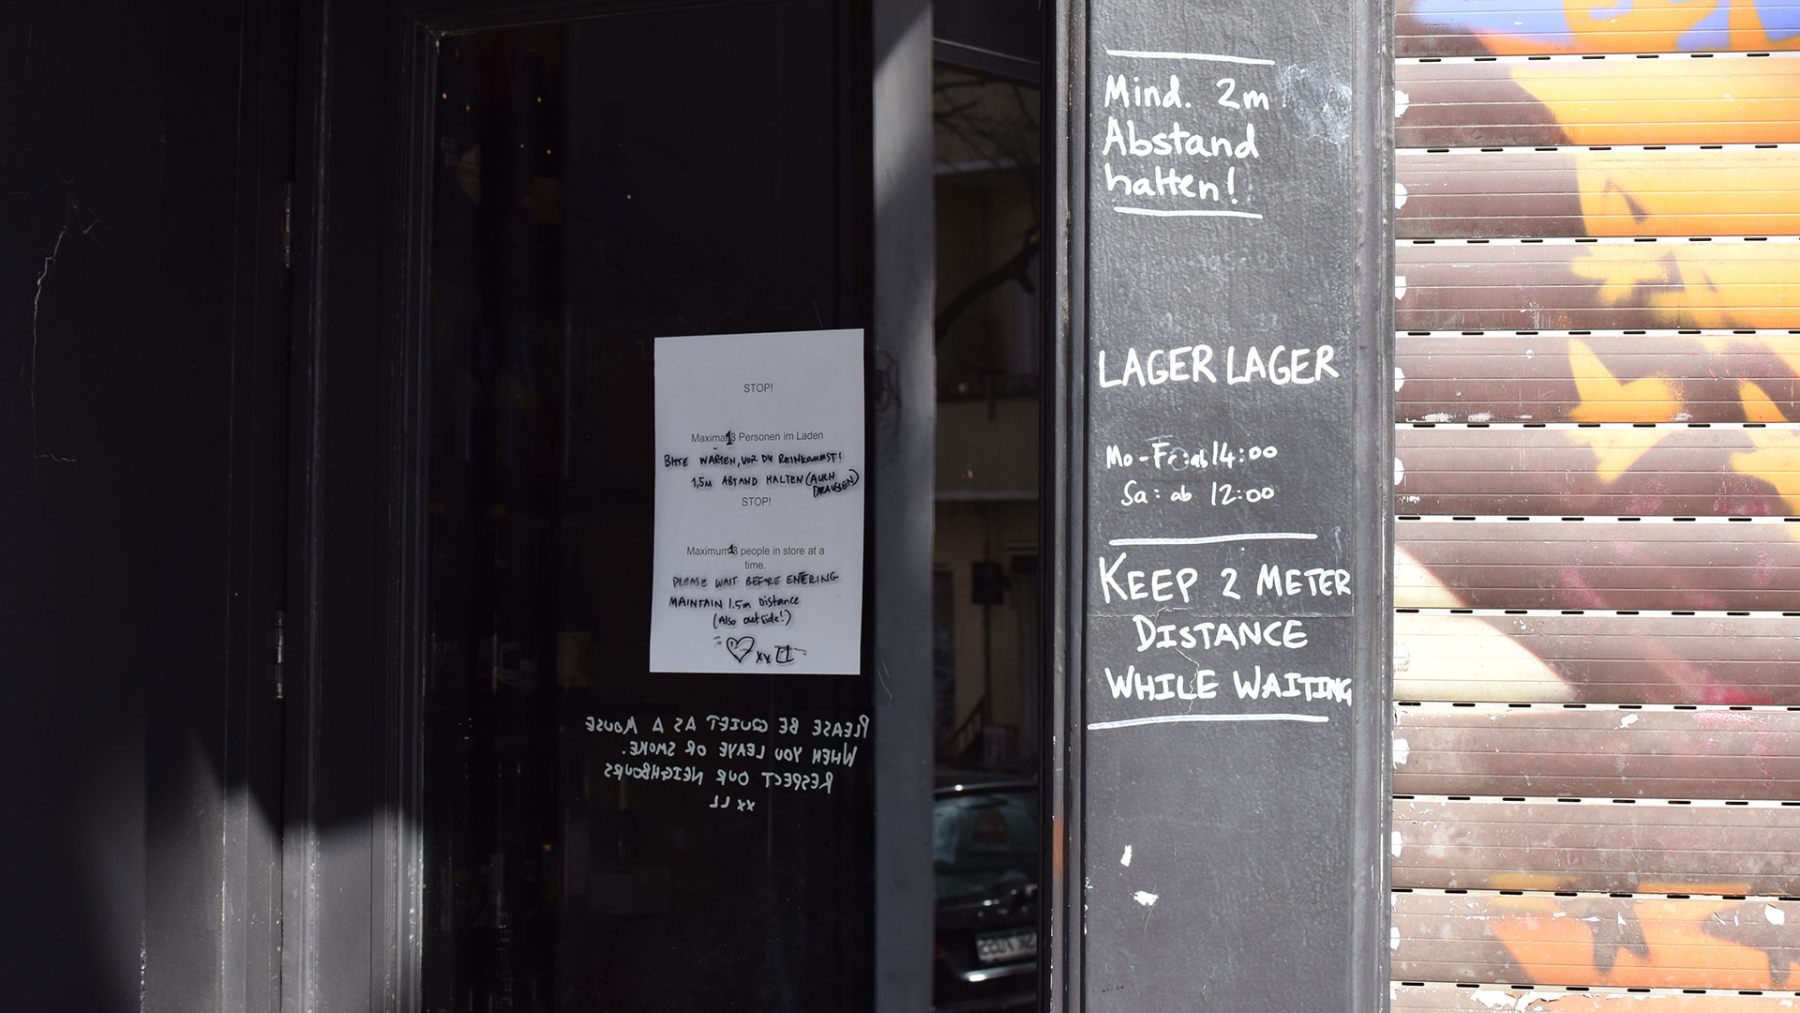 STOP!
Maximal 1 Personen im Laden
BITTE WARTEN, VOR DU REINKOMMST!
1,5M ABTAND HALTEN (AUCH
DRAUSSEN)
STOP!
Maximum 1 people in store at a
time.
PLEASE WAIT BEFORE ENTERING
MAINTAIN 1.5m Distance
(Also outside!)
xx LL
PLEASE BE QUIET AS A MOUSE
WHEN YOU LEAVE OR SMOKE.
RESPECT OUR NEIGHBOURS
xx LL
Mind. 2m
Abstand
halten!
LAGER LAGER
Mo-Fr: ab 14:00
Sa: ab 12:00
KEEP 2 METER
DISTANCE
WHILE WAITING